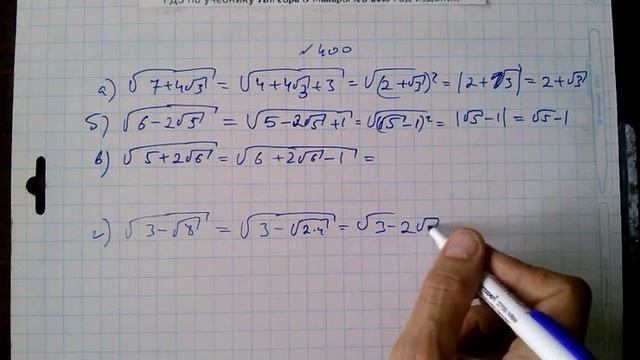 ГДЗ по учебнику Алгебра 8 Макарычев
№400
а) √(7+4√3) = √(4+4√3+3) = √(2+√3)² = |2+√3| = 2+√3
б) √(6-2√5) = √(5-2√5+1) = √(√5-1)² = |√5-1| = √5-1
в) √(5+2√6) = √(6+2√6-1) =
г) √(3-√8) = √(3-√(2·4)) = √3-2√